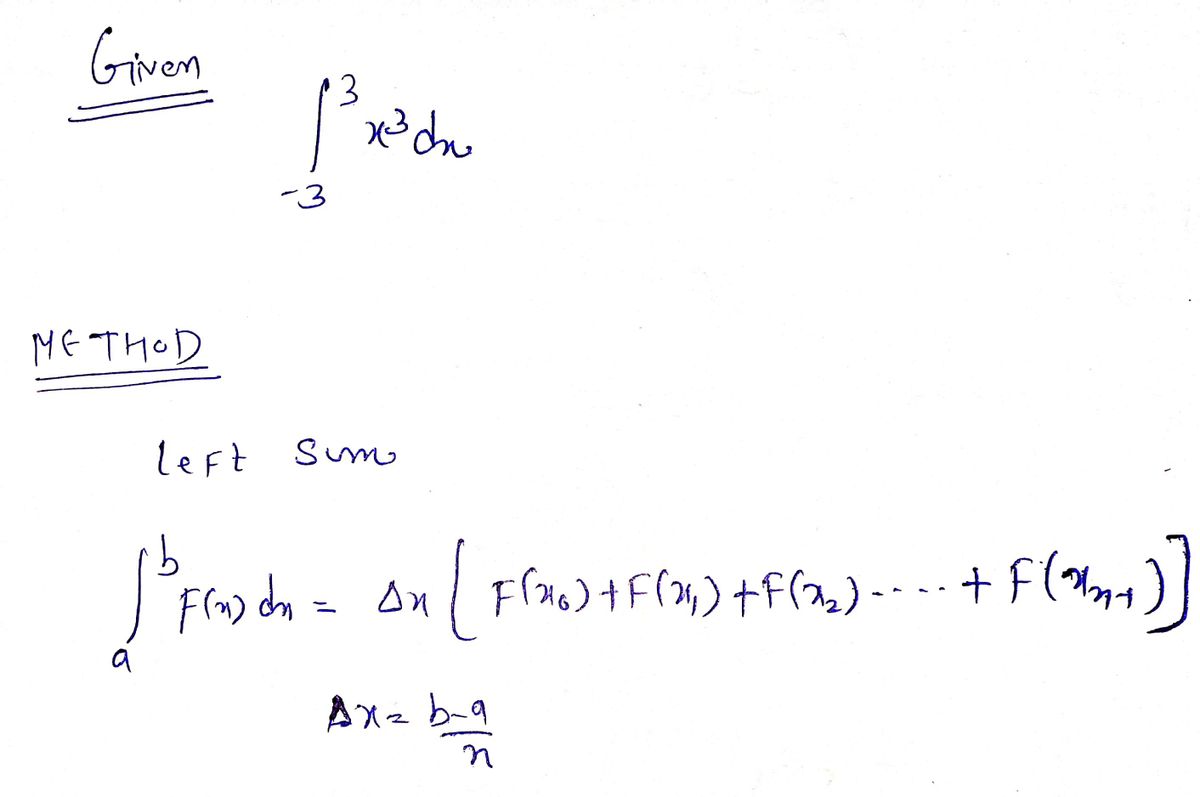 Given
∫_{-3}^{3} x³ dx
METHOD
left sum
∫_a^b F(x) dx = Δx [ F(x₀) + F(x₁) + F(x₂) ----- + F(xₙ₋₁) ]
Δx = (b-a)/n